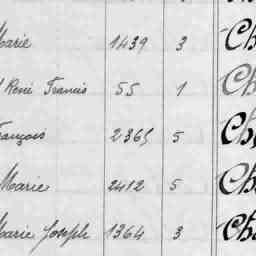 Marie 1439 3 Ch
René Francis 55 1 Ch
François 2365 5 Ch
Marie 2412 5 Ch
Marie Joseph 1364 3 Ch